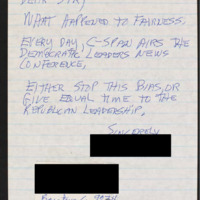 DEAR SIR,
WHAT HAPPENED TO FAIRNESS.
EVERY DAY, C-SPAN AIRS THE
DEMOCRATIC LEADERS NEWS
CONFERENCE.
EITHER STOP THIS BIAS, OR
GIVE EQUAL TIME TO THE
REPUBLICAN LEADERSHIP.
SINCERELY